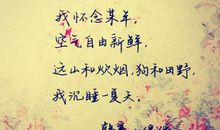 我怀念某年，
空气自由新鲜，
远山和炊烟，狗和田野，
我沉睡一夏天。